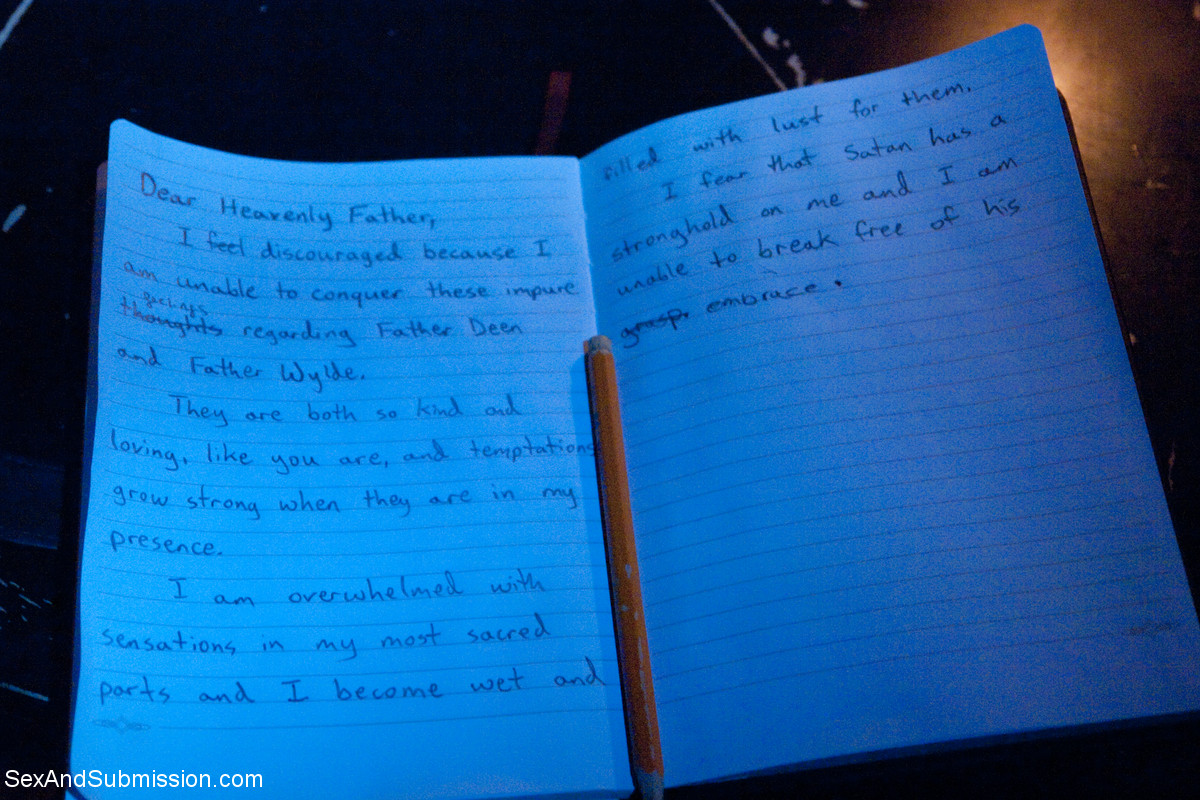 Dear Heavenly Father,
I feel discouraged because I
am unable to conquer these impure
feelings
thoughts regarding Father Deen
and Father Wylde.
They are both so kind and
loving, like you are, and temptations
grow strong when they are in my
presence.
I am overwhelmed with
sensations in my most sacred
parts and I become wet and
filled with lust for them.
I fear that Satan has a
stronghold on me and I am
unable to break free of his
grasp. embrace.
SexAndSubmission.com